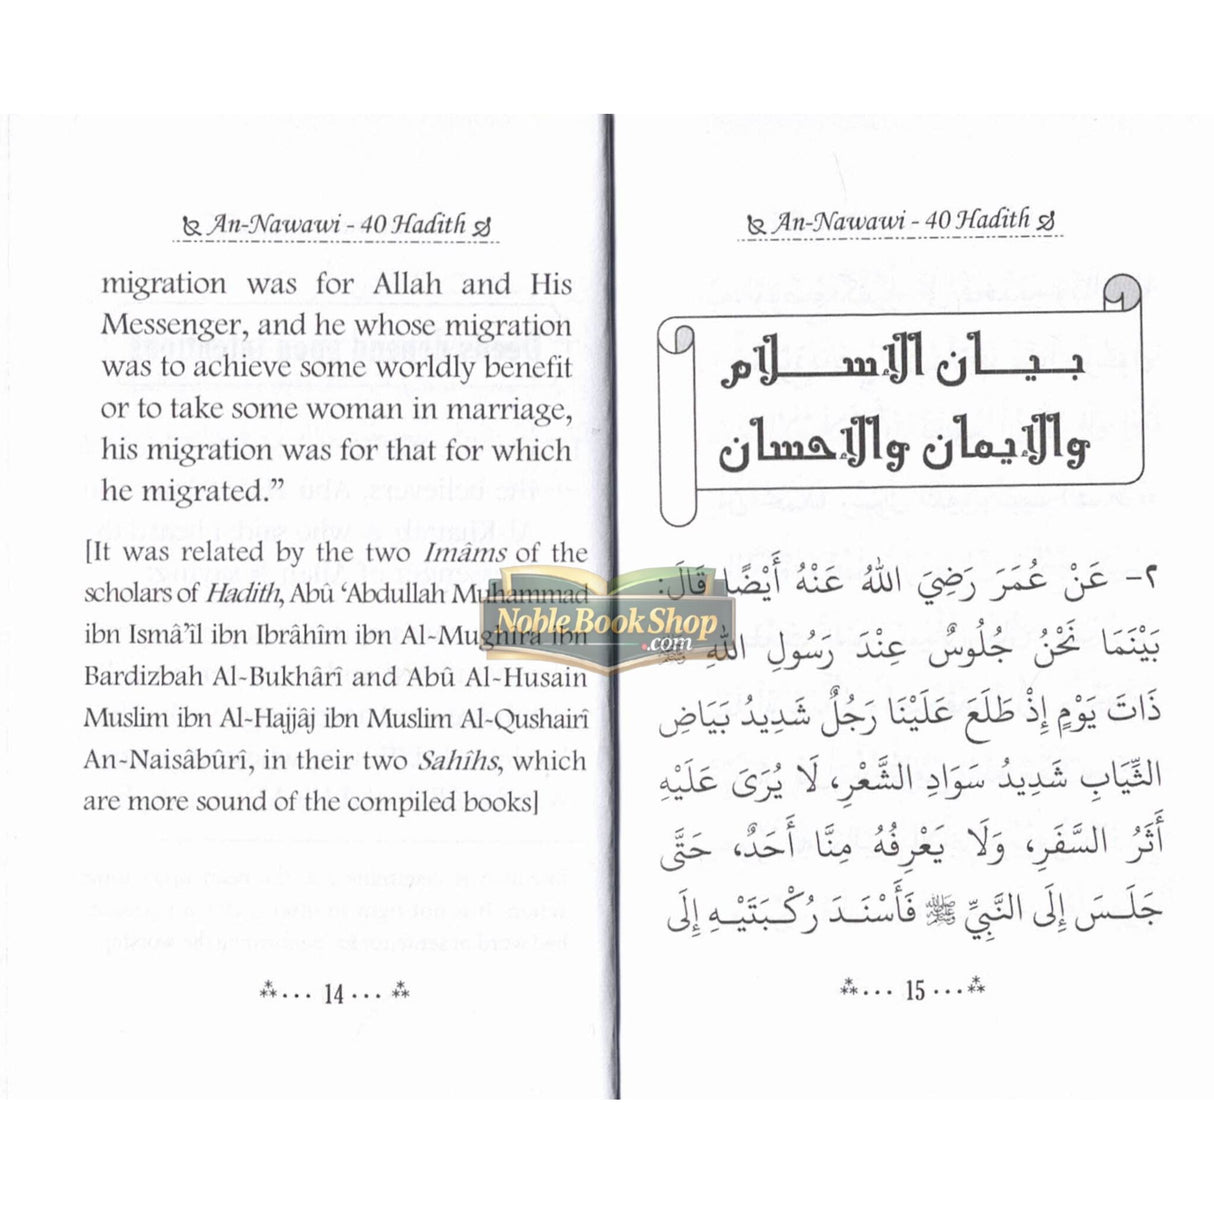 An-Nawawi - 40 Hadith
migration was for Allah and His
Messenger, and he whose migration
was to achieve some worldly benefit
or to take some woman in marriage,
his migration was for that for which
he migrated.”
[It was related by the two Imâms of the
scholars of Hadith, Abû ‘Abdullah Muhammad
ibn Ismâ’il ibn Ibrâhîm ibn Al-Mughira ibn
Bardizbah Al-Bukhârî and Abû Al-Husain
Muslim ibn Al-Hajjâj ibn Muslim Al-Qushairî
An-Naisâbûrî, in their two Sahîhs, which
are more sound of the compiled books]
14
An-Nawawi - 40 Hadith
بيان الإسلام
والإيمان والإحسان
٢- عَنْ عُمَرَ رَضِيَ اللهُ عَنْهُ أَيْضًا قَالَ:
بَيْنَمَا نَحْنُ جُلُوسٌ عِنْدَ رَسُولِ اللهِ ﷺ
ذَاتَ يَوْمٍ إِذْ طَلَعَ عَلَيْنَا رَجُلٌ شَدِيدُ بَيَاضِ
الثِّيَابِ شَدِيدُ سَوَادِ الشَّعْرِ، لَا يُرَىَ عَلَيْهِ
أَثَرُ السَّفَرِ، وَلَا يَعْرِفُهُ مِنَّا أَحَدٌ، حَتَّى
جَلَسَ إِلَى النَّبِيِّ ﷺ فَأَسْنَدَ رُكْبَتَيْهِ إِلَى
15
Noble Book Shop
.com